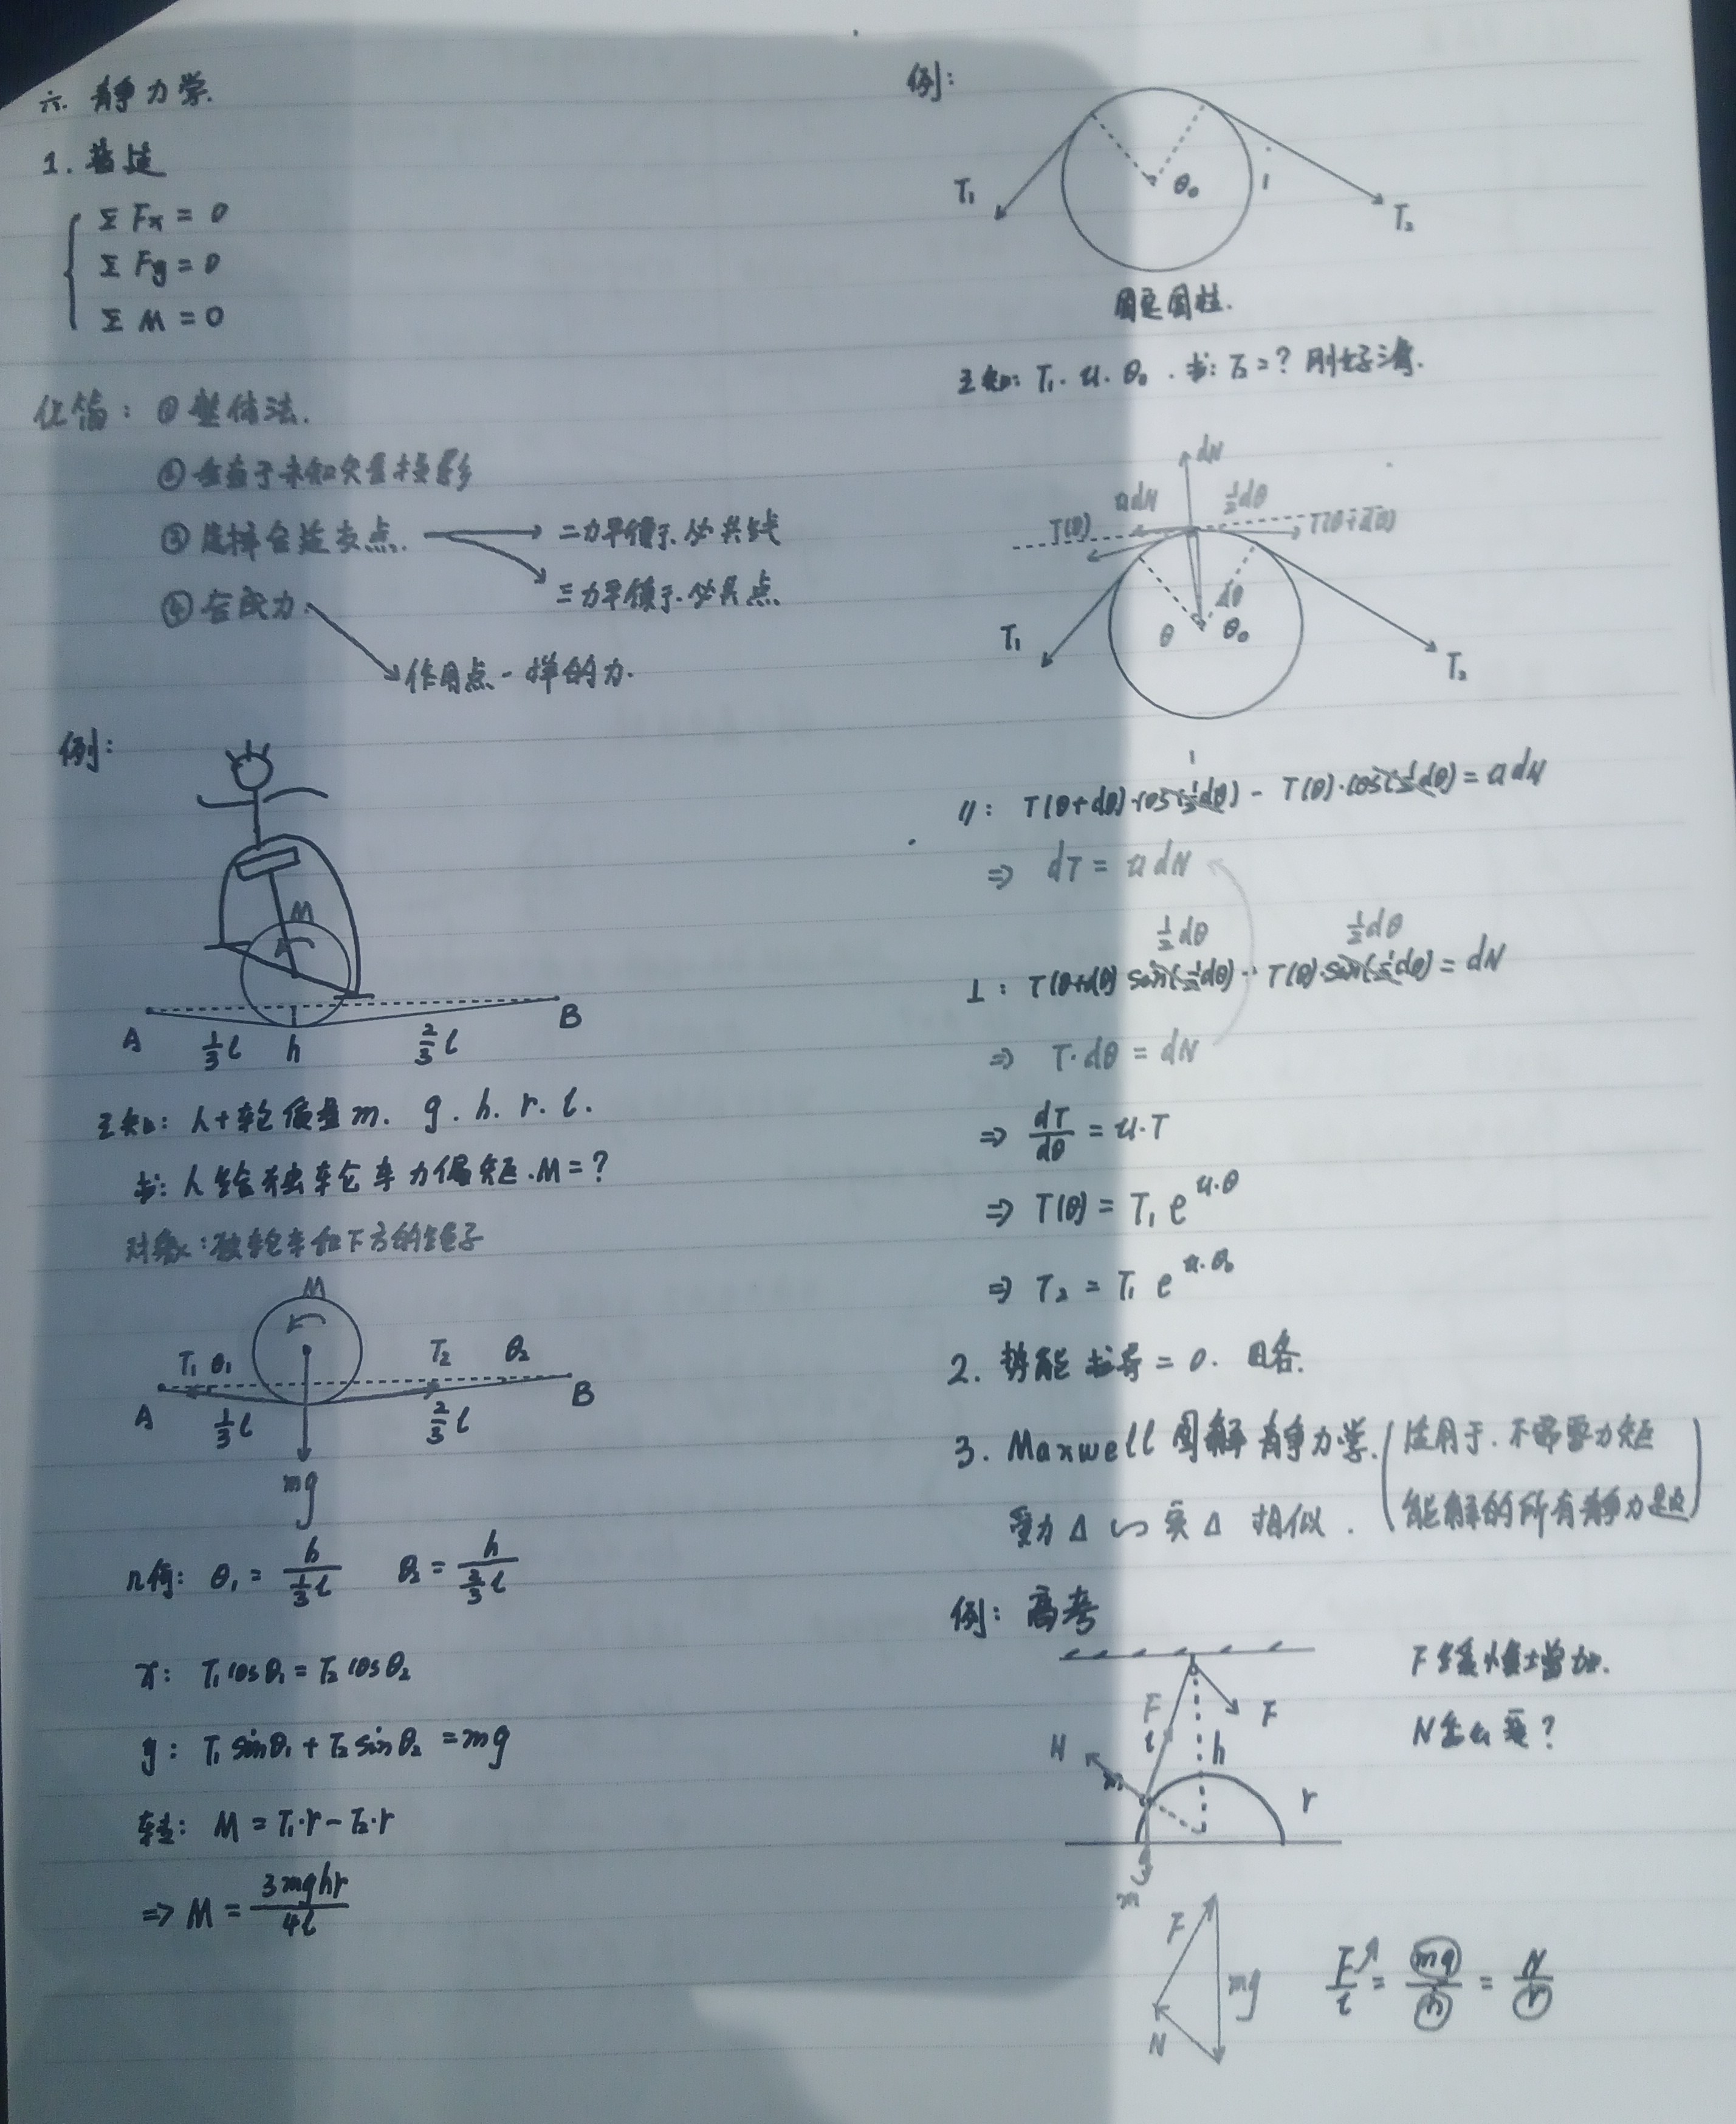 六. 静力学.
1. 普适
Σ Fx = 0
Σ Fy = 0
Σ M = 0
化简: ① 整体法.
② 垂直于未知矢量投影
③ 选择合适支点. → 二力平衡, 必共线
→ 三力平衡, 必共点.
④ 合成力. → 作用点一样的力.
例:
M
A
B
1/3 l
h
2/3 l
已知: 人+轮 质量 m. g. h. r. l.
求: 人给独轮车力偶矩. M = ?
对象: 独轮车和下方的绳子
M
T₁ θ₁
T₂ θ₂
A
B
1/3 l
2/3 l
mg
几何: θ₁ = h / (1/3 l) θ₂ = h / (2/3 l)
x: T₁ cosθ₁ = T₂ cosθ₂
y: T₁ sinθ₁ + T₂ sinθ₂ = mg
转: M = T₁·r − T₂·r
⇒ M = 3mghr / 4l
例:
T₁
θ₀
T₂
固定圆柱.
已知: T₁. u. θ₀. 求: T₂ = ? 刚好滑.
dN
udN
1/2 dθ
T(θ)
T(θ+dθ)
dθ
θ
θ₀
T₁
T₂
1
∥: T(θ+dθ)·cos(1/2 dθ) − T(θ)·cos(1/2 dθ) = u dN
⇒ dT = u dN
1/2 dθ 1/2 dθ
⊥: T(θ+dθ) sin(1/2 dθ) + T(θ)·sin(1/2 dθ) = dN
⇒ T·dθ = dN
⇒ dT/dθ = u·T
⇒ T(θ) = T₁ e^{u·θ}
⇒ T₂ = T₁ e^{u·θ₀}
2. 势能求导 = 0. 略.
3. Maxwell 图解静力学. (适用于. 不需要力矩
能解的所有静力题)
受力 Δ ∽ 实 Δ 相似.
例: 高考
F 缓慢增加.
N 怎么变?
F
F
l
h
N
m
r
m
F
mg
N
F/l = mg/h = N/r